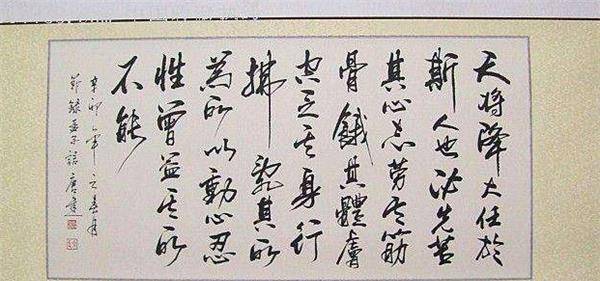 天将降大任於
斯人也必先苦
其心志劳其筋
骨餓其體膚
空乏其身行
拂乱其所
為所以動心忍
性曾益其所
不能
辛卯年之春月
節録孟子語唐建